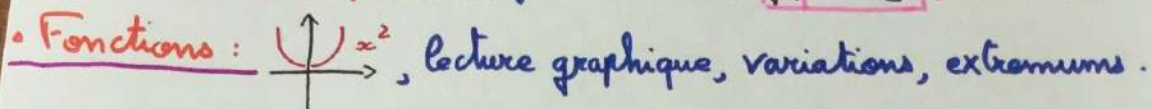 • Fonctions : x², lecture graphique, variations, extremums.